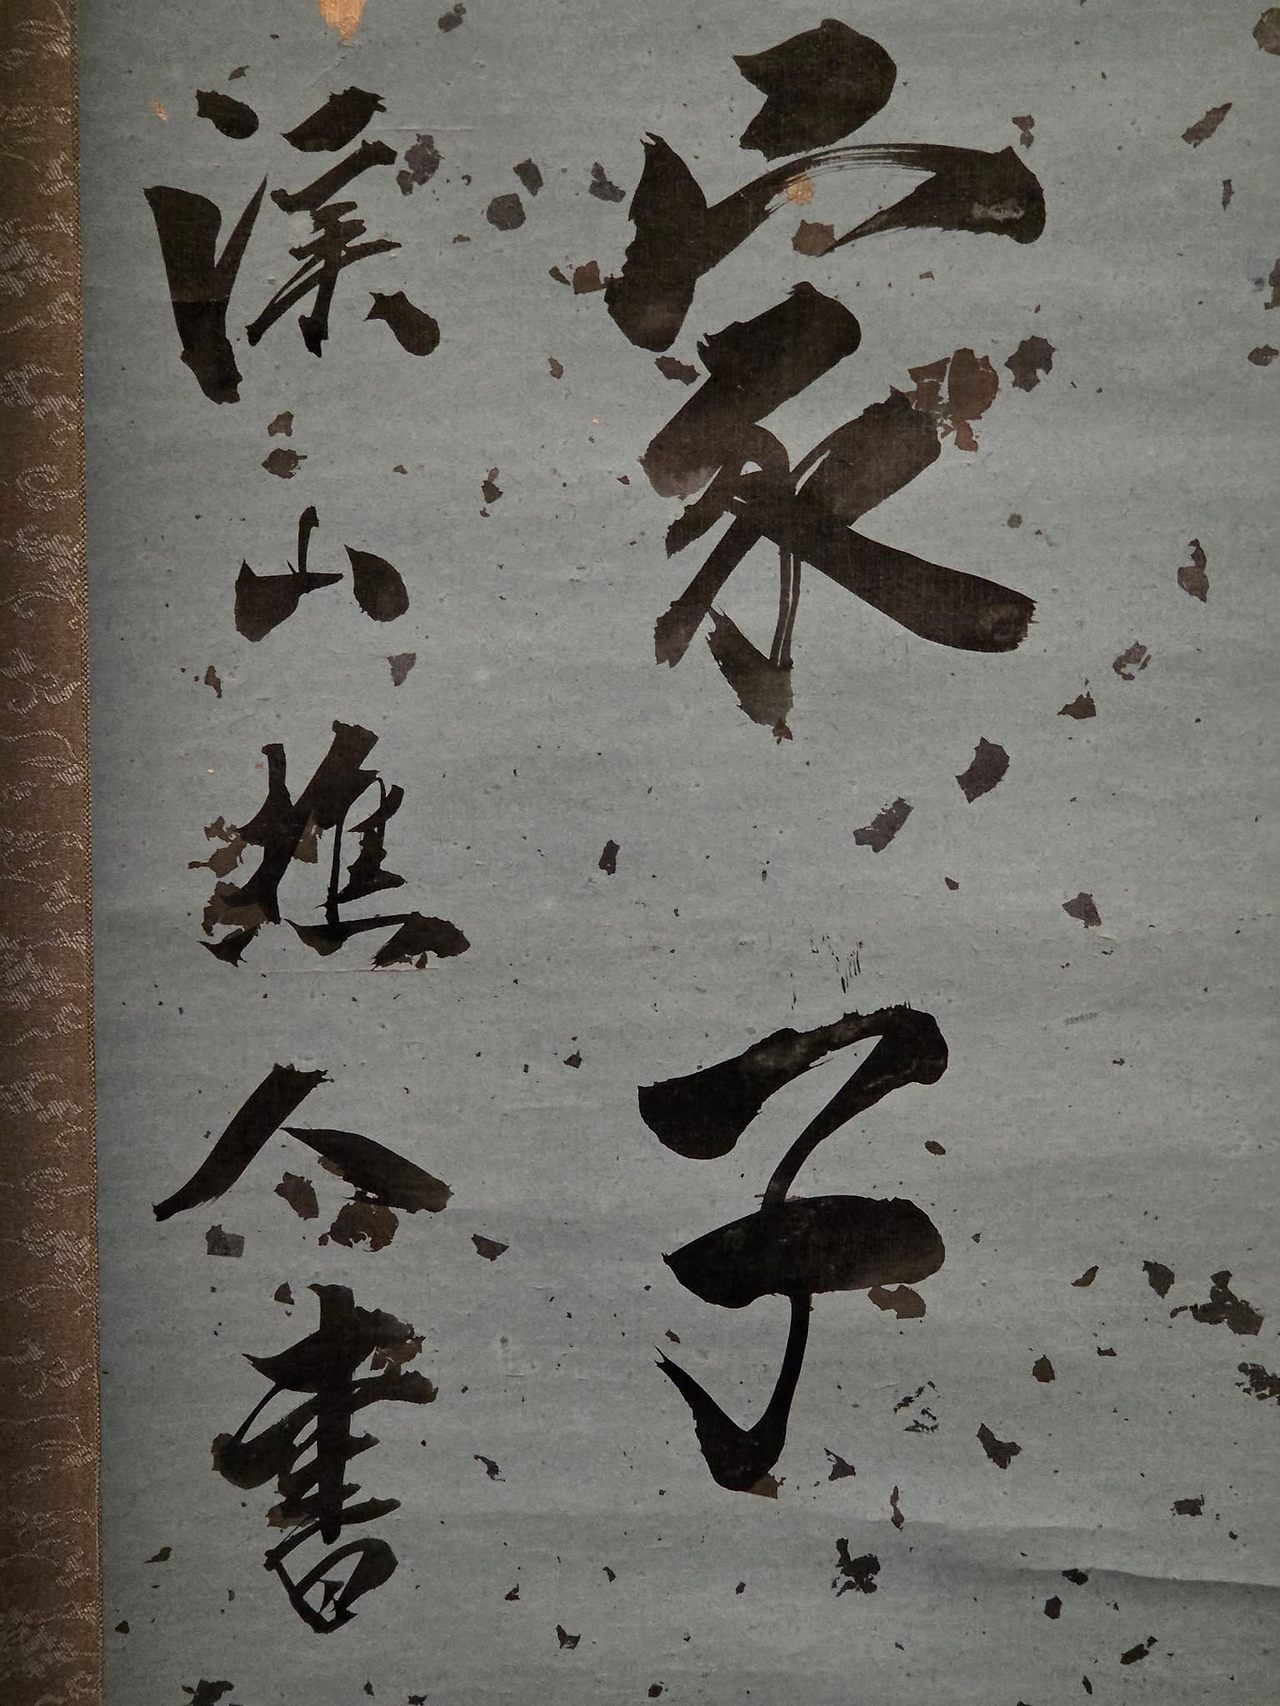 家子
深山樵人書